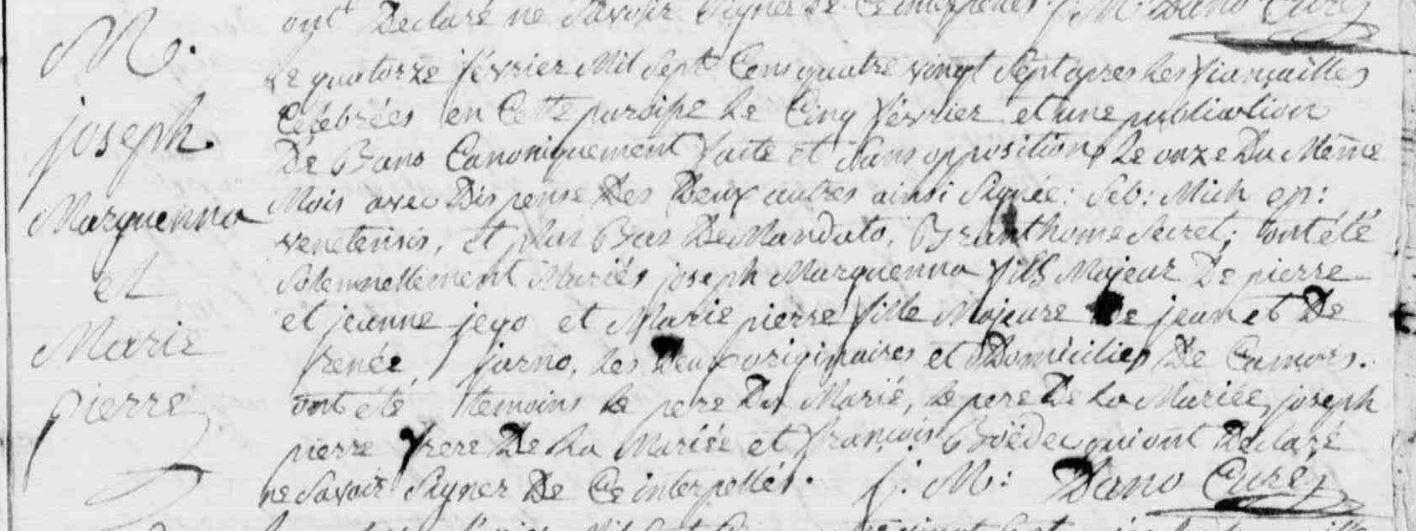 ont Declaré ne Savoir Signer De Ce interpellés. j. M. Dano Curé
M.
joseph
Marquenna
et
Marie
pierre
Le quatorze février Mil Sept Cens quatre vingt Sept apres Les fiançailles
Célébrées en Cette paroisse Le Cinq février et une publication
De Bans Canoniquement faite et Sans opposition Le onze Du Même
Mois avec Dispense Des Deux autres ainsi Signée: Seb: Mich ep:
venetensis, et plus Bas De Mandato, Branthome Secret; ont été
Solemnellement Mariés joseph Marquenna fils Majeur De pierre
et jeanne jego et Marie pierre fille Majeure De jean et De
renée jarno, Les Deux originaires et Domiciliés De Camors.
ont été temoins Le pere Du Marié, Le pere De La Mariée, joseph
pierre frere De La Mariée et françois Boëdec qui ont Déclaré
ne Savoir Signer De Ce interpellés. j. M: Dano Curé